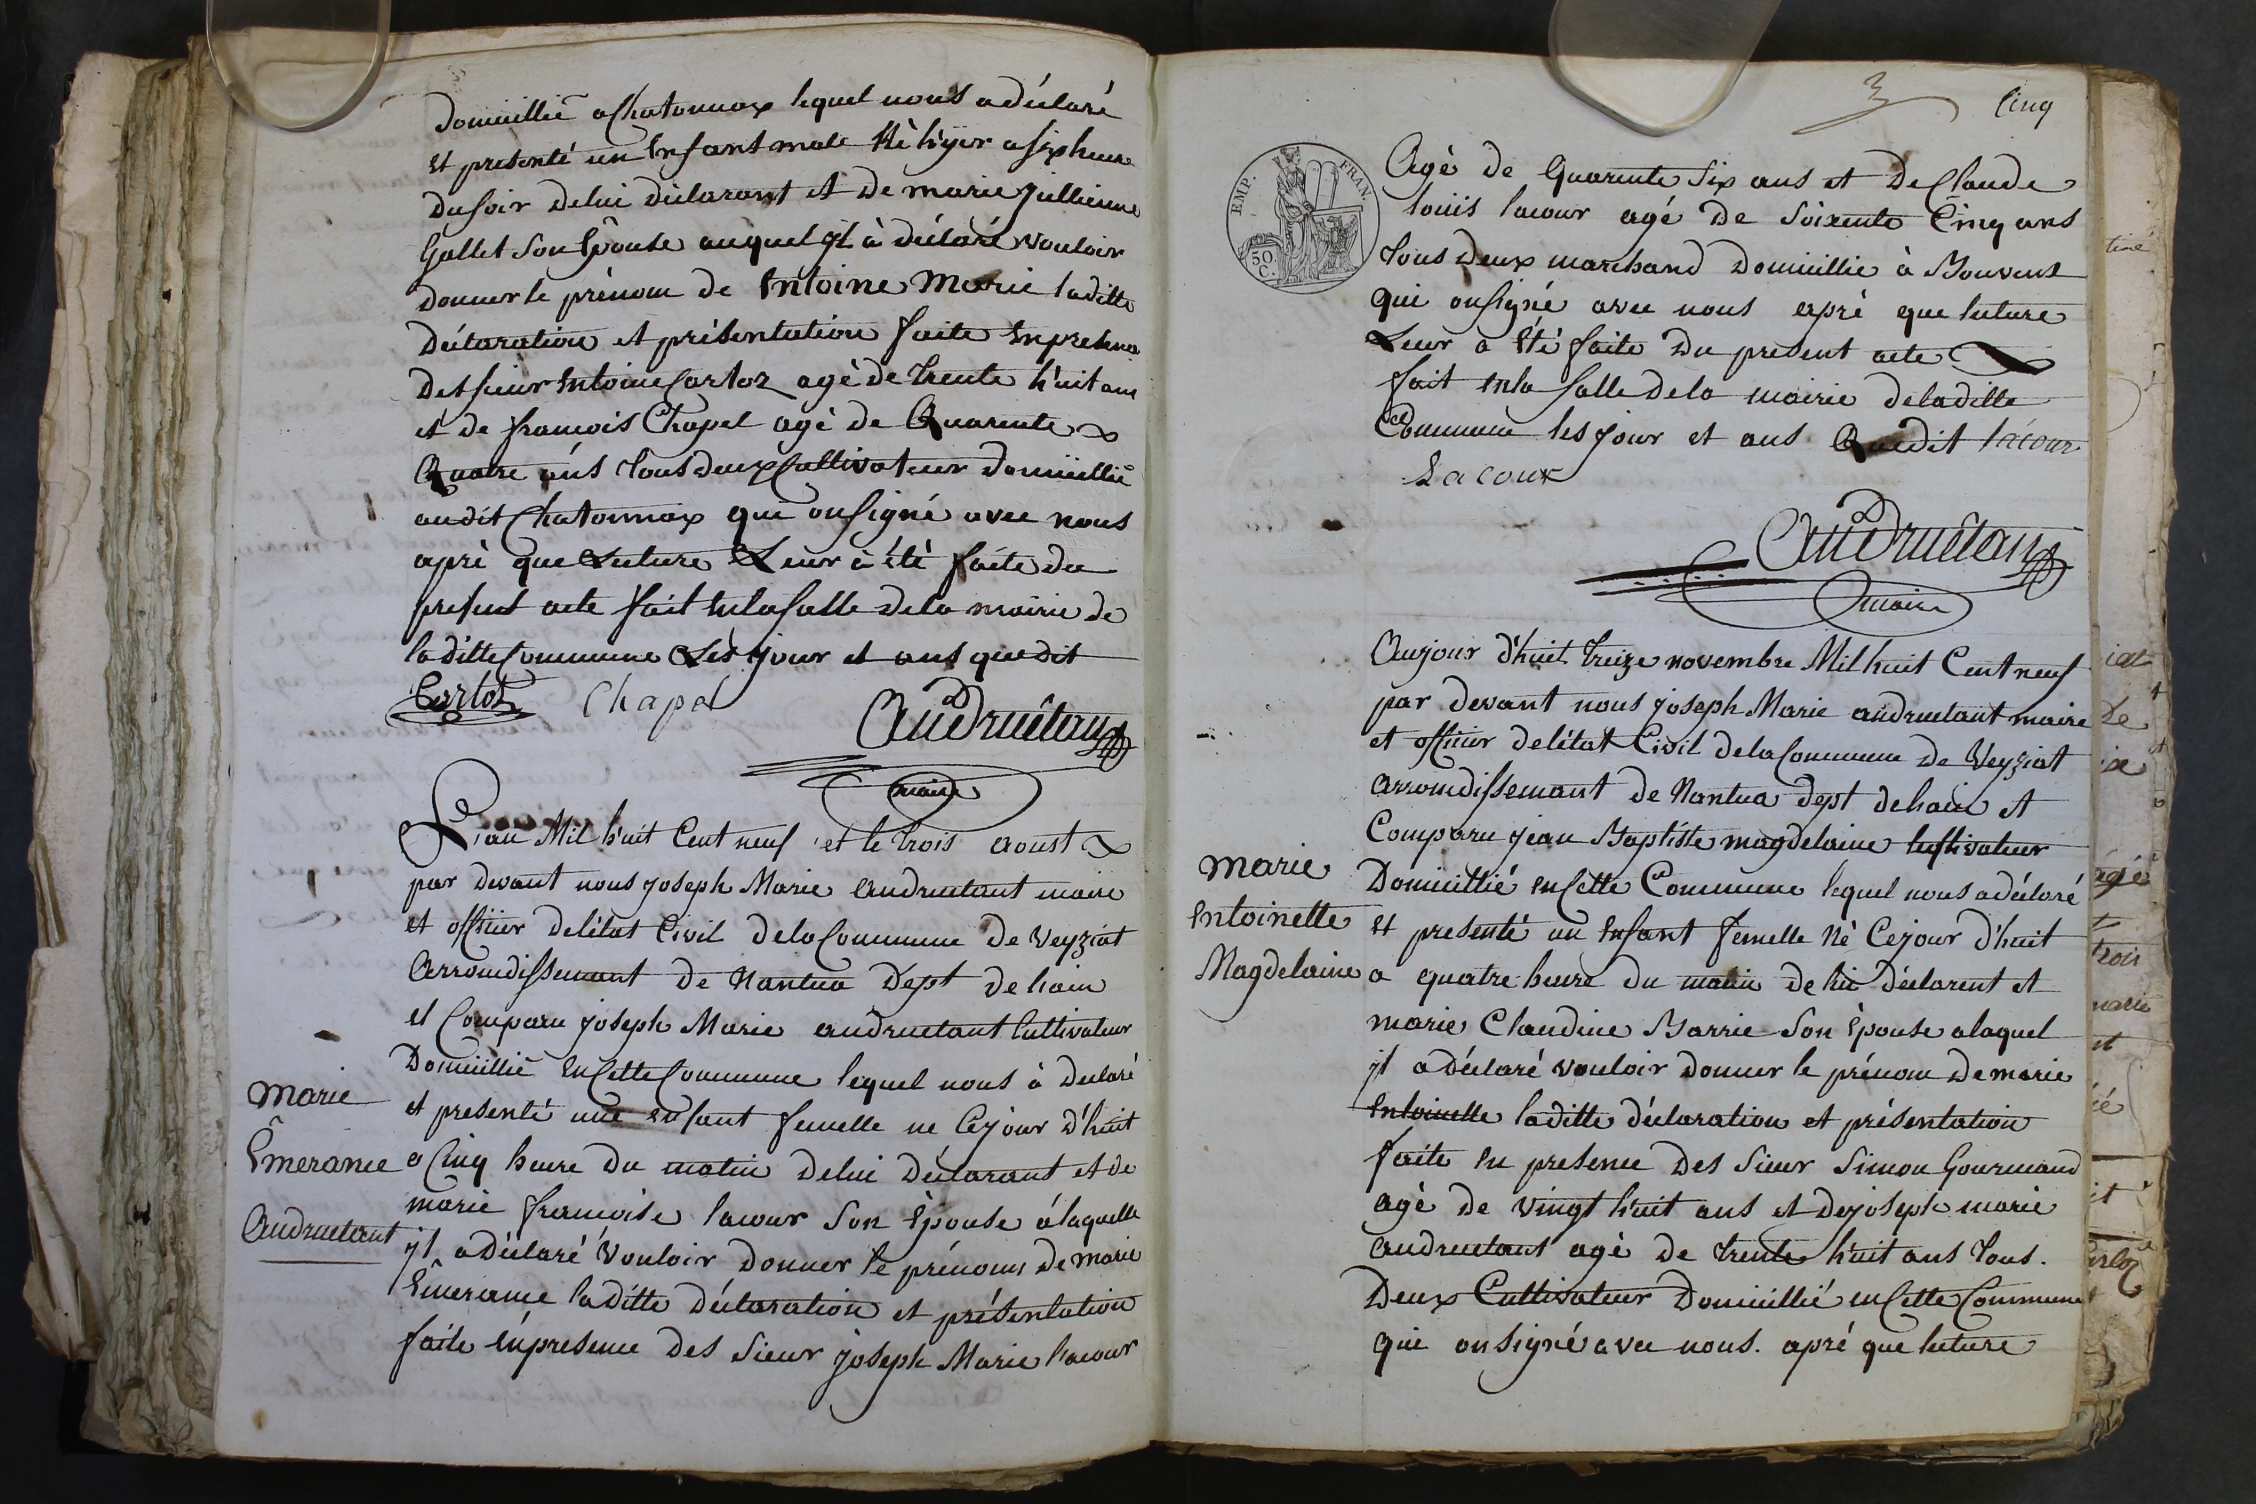 Domicillié a Chatonnax lequel nous a déclaré
et presenté un Enfant male Né hÿer a six heure
du soir de lui déclarant et de marie jullienne
Gallet Son Epouse auquel jl à déclaré vouloir
donner le prénom de Entoine Marie laditte
Déclaration et présentation faite En presence
Des sieur Entoine Carloz agé de trente huit ans
et de françois Chapel agé de Quarente
Quatre ans tous deux Cultivateur domicillié
audit Chatonnax qui on signé avec nous
aprè que Lecture Leur à été faite du
present acte fait En la salle de la mairie de
laditte Commune Les jour et ans que dit
Carloz Chapel Andruétan
maire
L'an Mil huit Cent neuf et le trois aoust
par devant nous joseph Marie andruetant maire
et officier de l'état Civil de la Commune de Veyziat
Arrondissemant de Nantua Dept de l'ain
et Comparu joseph Marie andruetant Cultivateur
Domicillié En Cette Commune lequel nous à declaré
et presenté une enfant femelle ne Ce jour d'huit
a Cinq heure du matin de lui Déclarant et de
marie françoise lacour Son Epouse à laquelle
jl a déclaré Vouloir donner le prénoms de marie
Emerance laditte déclaration et présentation
faite En presence Des Sieur joseph Marie lacour
marie
Emerance
Andruetant
Cinq
EMP. FRAN.
50 C.
Agé de Quarente Six ans et De Claude
louis lacour agé de Soixente Cinq ans
tous Deux marchand Domicillié à Bouvent
qui on signé avec nous apré que lecture
Leur a Eté faite Du present acte
fait en la salle de la mairie de laditte
Commune les jour et ans Que dit lacour
Lacour
Andruétan
maire
Aujour d'huit treize novembre Mil huit Cent neuf
par devant nous joseph Marie andruetant maire
et officier de létat Civil de la Commune de Veyziat
Arrondissemant de Nantua dept de l'ain et
Comparu jean Baptiste magdelaine Cultivateur
Domicillié en Cette Commune lequel nous a déclaré
et presenté un enfant femelle Né Ce jour d'huit
a quatre heure du matin de lui déclarent et
marie Claudine Barrie Son épouse a laquel
jl a Déclaré vouloir donner le prénom De marie
Entoinette laditte déclaration et présentation
faite en presence Des Sieur Simon Gourmand
agè de vingt huit ans et de joseph marie
andruetant agé de trente huit ans tous
Deux Cultivateur Domicillié en Cette Commune
qui on signé avec nous apré que lecture
marie
Entoinette
Magdelaine